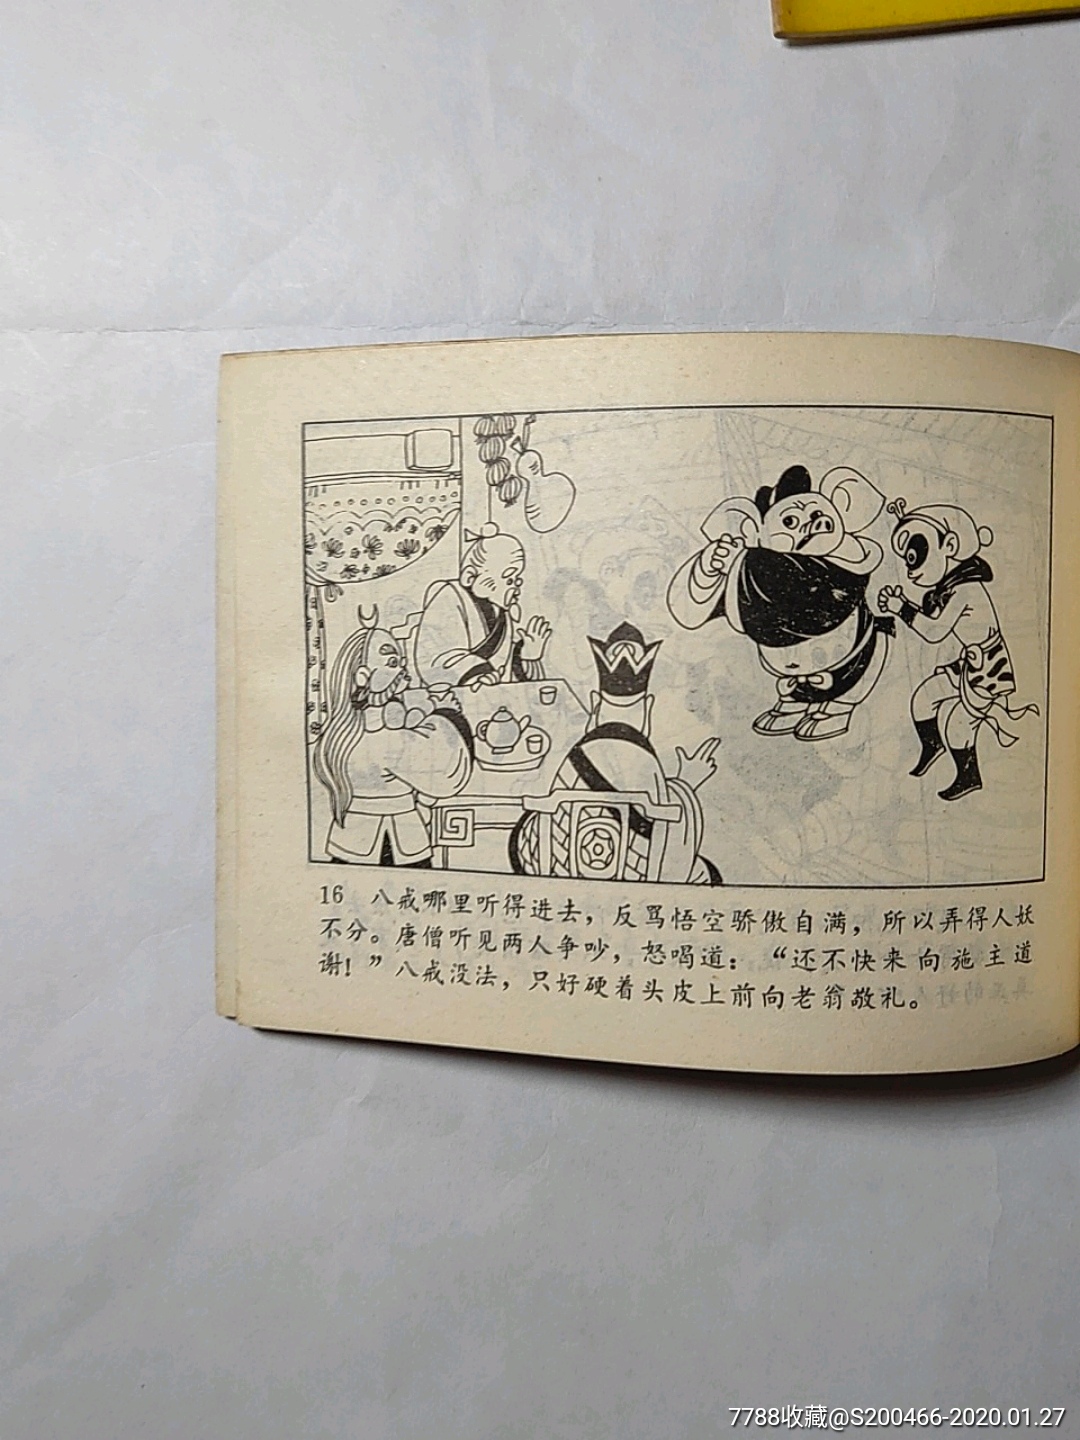 16 八戒哪里听得进去，反骂悟空骄傲自满，所以弄得人妖
不分。唐僧听见两人争吵，怒喝道：“还不快来向施主道
谢！”八戒没法，只好硬着头皮上前向老翁敬礼。
7788收藏@S200466-2020.01.27